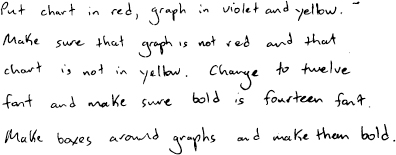 Put chart in red, graph in violet and yellow. -
Make sure that graph is not red and that
chart is not in yellow. Change to twelve
font and make sure bold is fourteen font.
Make boxes around graphs and make them bold.